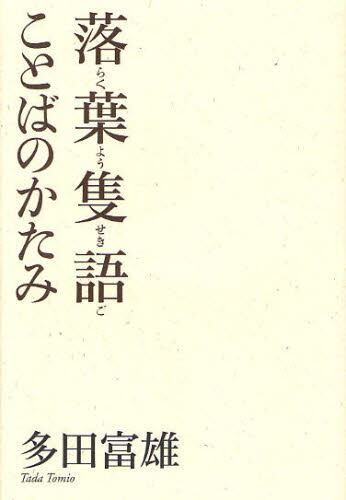 落葉隻語
らくようせきご
ことばのかたみ
多田富雄
Tada Tomio